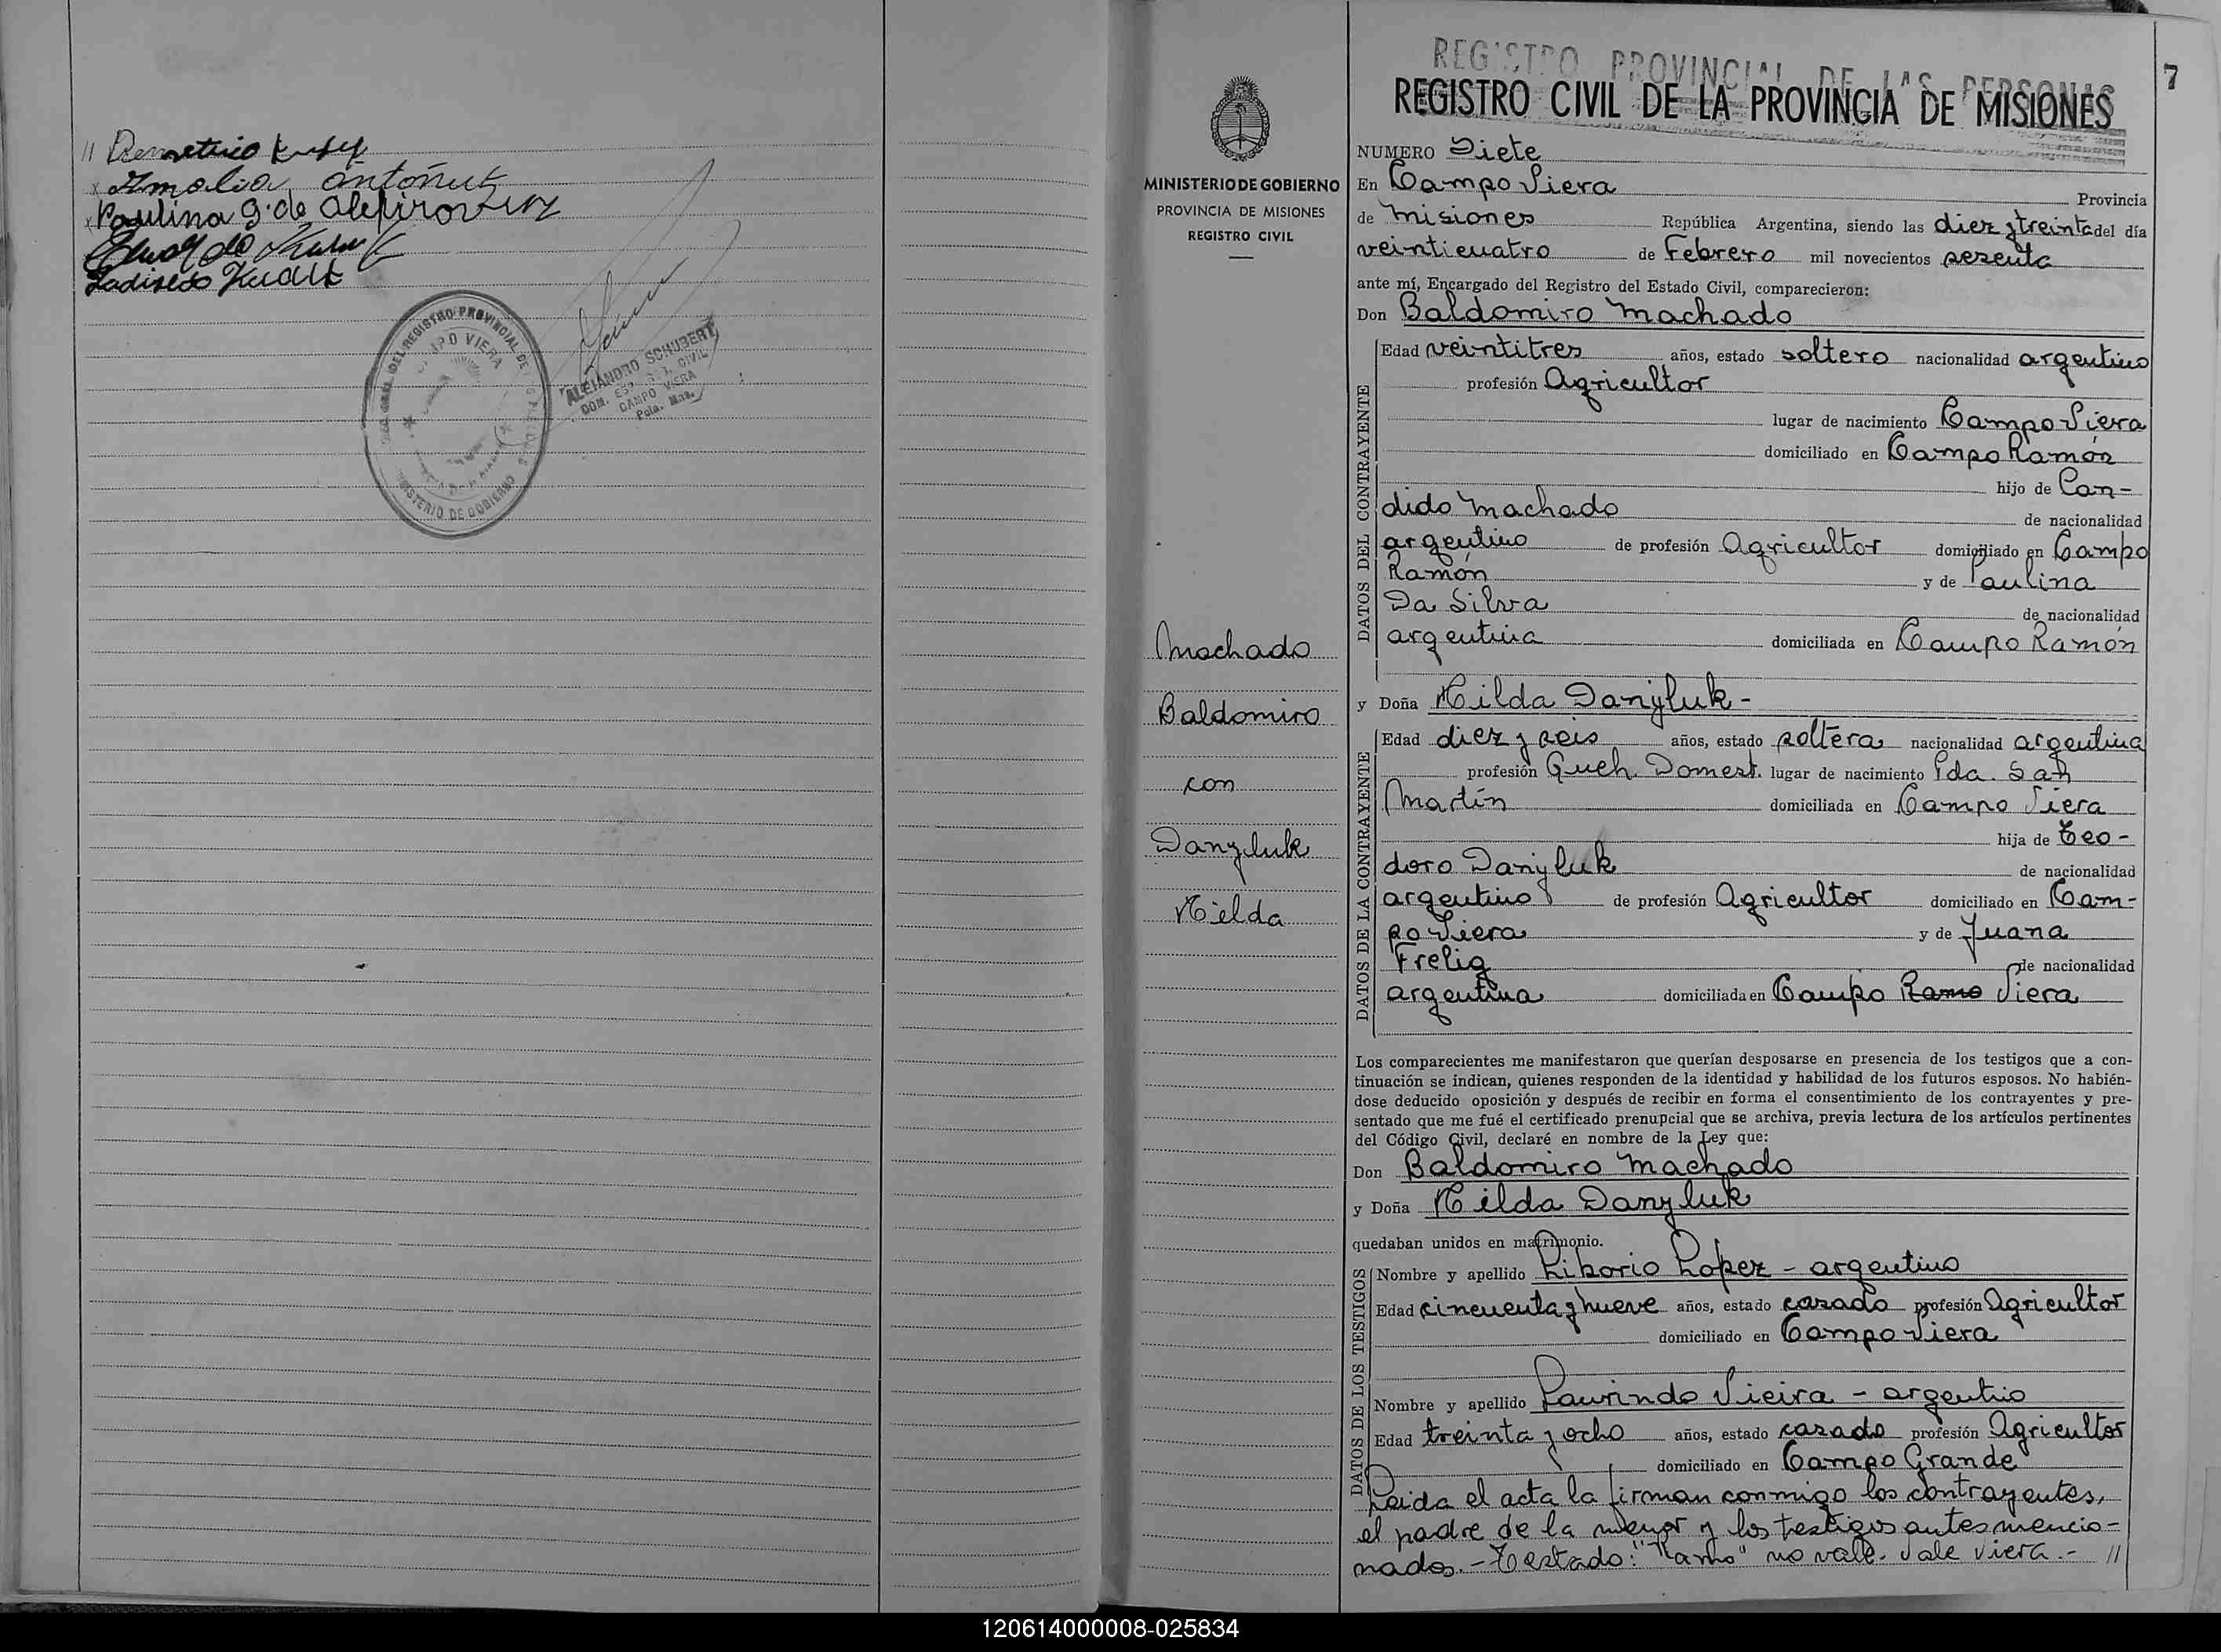 // Demetrio
x Amalia Antoñuk
x Paulina G. de
Ladislao
REGISTRO PROVINCIAL DE
CAMPO VIERA
MINISTERIO DE GOBIERNO
ALEJANDRO SCHUBERT
CAMPO VIERA
Pcia. Mns.
MINISTERIO DE GOBIERNO
PROVINCIA DE MISIONES
REGISTRO CIVIL
Machado
Baldomiro
con
Danyluk
Hilda
7
REGISTRO PROVINCIAL DE LAS PERSONAS
REGISTRO CIVIL DE LA PROVINCIA DE MISIONES
NUMERO Siete
En Campo Viera Provincia
de Misiones República Argentina, siendo las diez y treinta del día
veinticuatro de Febrero mil novecientos sesenta
ante mí, Encargado del Registro del Estado Civil, comparecieron:
Don Baldomiro Machado
DATOS DEL CONTRAYENTE
Edad veintitres años, estado soltero nacionalidad argentino
profesión Agricultor
lugar de nacimiento Campo Viera
domiciliado en Campo Ramón
hijo de Can-
dido Machado de nacionalidad
argentino de profesión Agricultor domiciliado en Campo
Ramón y de Paulina
Da Silva de nacionalidad
argentina domiciliada en Campo Ramón
y Doña Hilda Danyluk -
DATOS DE LA CONTRAYENTE
Edad diez y seis años, estado soltera nacionalidad argentina
profesión Queh. Domest. lugar de nacimiento Pda. San
Martín domiciliada en Campo Viera
hija de Teo-
doro Danyluk de nacionalidad
argentino de profesión Agricultor domiciliado en Cam-
po Viera y de Juana
Frelig de nacionalidad
argentina domiciliada en Campo Ramo Viera
Los comparecientes me manifestaron que querían desposarse en presencia de los testigos que a con-
tinuación se indican, quienes responden de la identidad y habilidad de los futuros esposos. No habién-
dose deducido oposición y después de recibir en forma el consentimiento de los contrayentes y pre-
sentado que me fué el certificado prenupcial que se archiva, previa lectura de los artículos pertinentes
del Código Civil, declaré en nombre de la Ley que:
Don Baldomiro Machado
y Doña Hilda Danyluk
quedaban unidos en matrimonio.
DATOS DE LOS TESTIGOS
Nombre y apellido Liborio Lopez - argentino
Edad cincuenta y nueve años, estado casado profesión Agricultor
domiciliado en Campo Viera
Nombre y apellido Laurindo Vieira - argentino
Edad treinta y ocho años, estado casado profesión Agricultor
domiciliado en Campo Grande
Leida el acta la firman conmigo los contrayentes,
el padre de la menor y los testigos antes mencio-
nados.- Testado: "Ramo" no vale. Vale Viera.- //
120614000008-025834